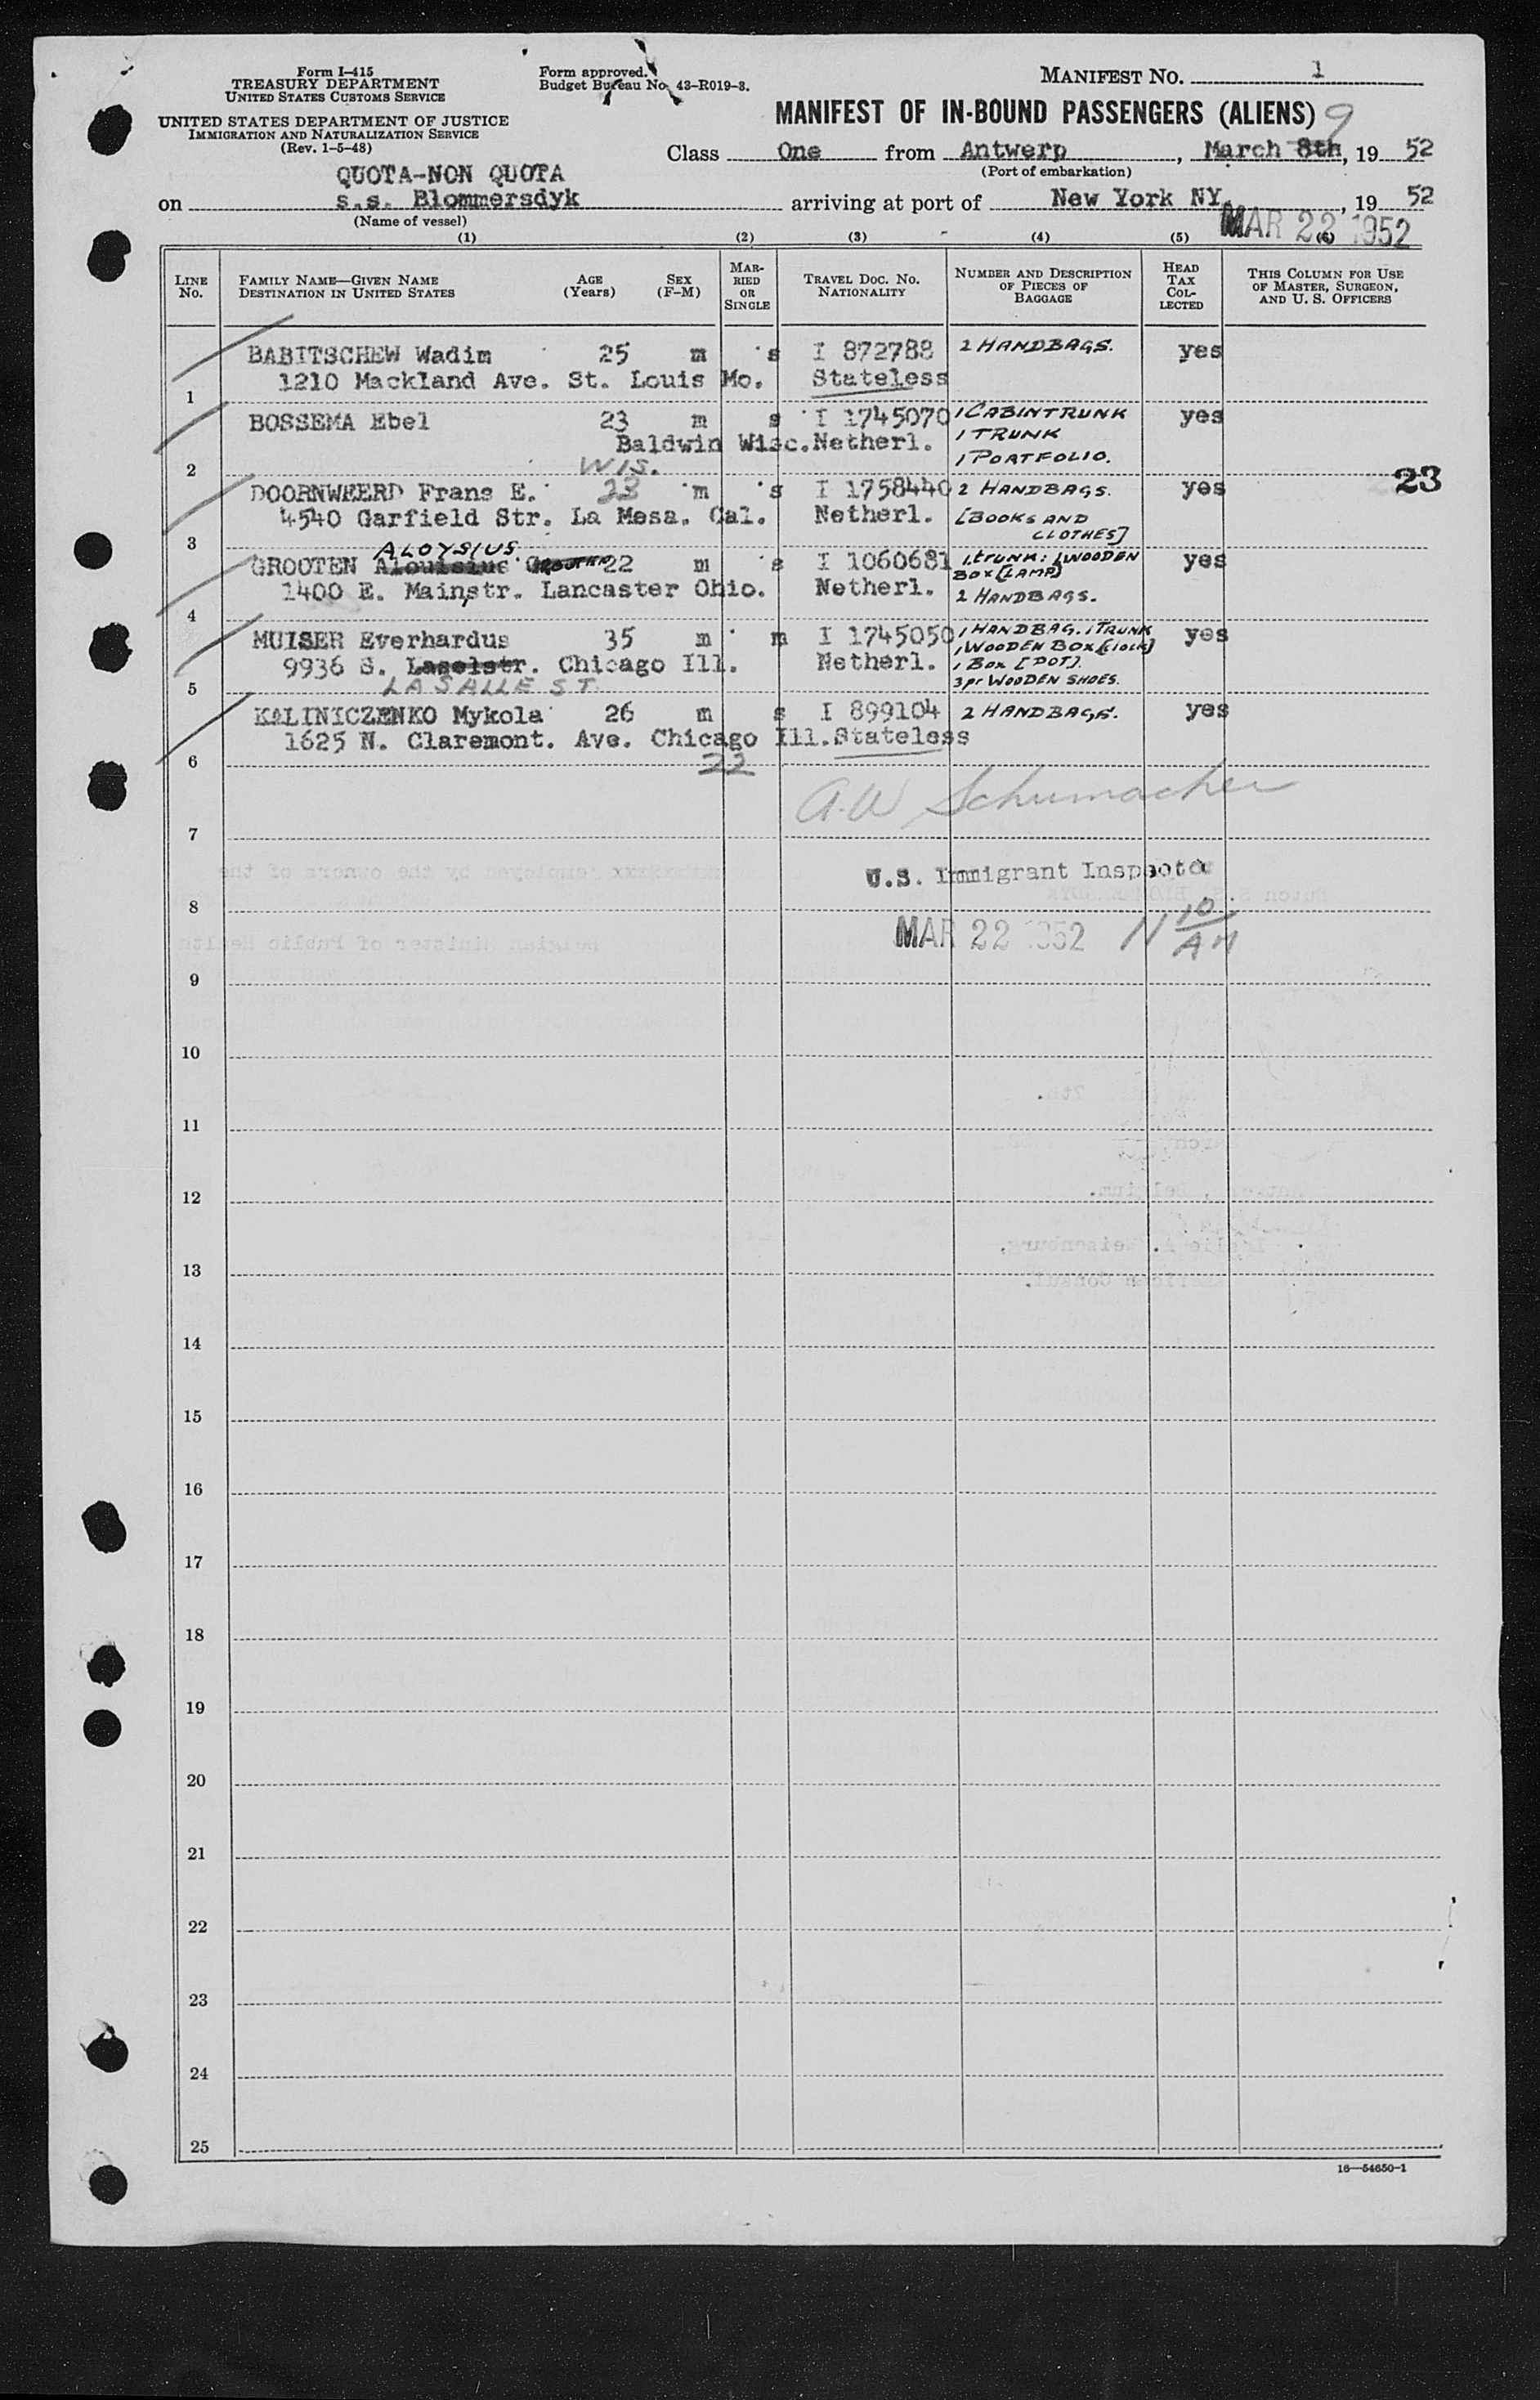 Form I-415
TREASURY DEPARTMENT
UNITED STATES CUSTOMS SERVICE
UNITED STATES DEPARTMENT OF JUSTICE
IMMIGRATION AND NATURALIZATION SERVICE
(Rev. 1-5-48)
Form approved.
Budget Bureau No. 43-R019-3.
MANIFEST NO. 1
MANIFEST OF IN-BOUND PASSENGERS (ALIENS)
9
Class One from Antwerp, March 8th, 19 52
(Port of embarkation)
QUOTA-NON QUOTA
on s.s. Blommersdyk arriving at port of New York NY, 19 52
(Name of vessel)
MAR 22 1952
(1) (2) (3) (4) (5) (6)
LINE NO.
FAMILY NAME—GIVEN NAME
DESTINATION IN UNITED STATES
AGE (Years)
SEX (F-M)
MARRIED OR SINGLE
TRAVEL DOC. NO. NATIONALITY
NUMBER AND DESCRIPTION OF PIECES OF BAGGAGE
HEAD TAX COLLECTED
THIS COLUMN FOR USE OF MASTER, SURGEON, AND U. S. OFFICERS
BABITSCHEW Wadim 25 m s I 872788 2 HANDBAGS. yes
1210 Mackland Ave. St. Louis Mo. Stateless
1
BOSSEMA Ebel 23 m s I 1745070 1 CABINTRUNK yes
Baldwin Wisc. Netherl. 1 TRUNK
WIS. 1 PORTFOLIO.
2
23
DOORNWEERD Frans E. 23 m s I 1758440 2 HANDBAGS. yes
4540 Garfield Str. La Mesa. Cal. Netherl. [BOOKS AND
CLOTHES]
3
ALOYSIUS
GROOTEN Alouisius GROOTEN 22 m s I 1060681 1 trunk: 1 WOODEN yes
BOX [LAMP]
1400 E. Mainstr. Lancaster Ohio. Netherl. 2 HANDBAGS.
4
MUISER Everhardus 35 m m I 1745050 1 HANDBAG. 1 TRUNK yes
1 WOODEN BOX [CLOCK]
9936 S. Laselstr. Chicago Ill. Netherl. 1 BOX [POT].
LA SALLE ST 3 pr WOODEN SHOES.
5
KALINICZENKO Mykola 26 m s I 899104 2 HANDBAGS. yes
1625 N. Claremont. Ave. Chicago Ill. Stateless
22
6
A.W Schumacher
7
U.S. Immigrant Inspector
8
MAR 22 1952 11 10/AM
9
10
11
12
13
14
15
16
17
18
19
20
21
22
23
24
25
16—54650-1